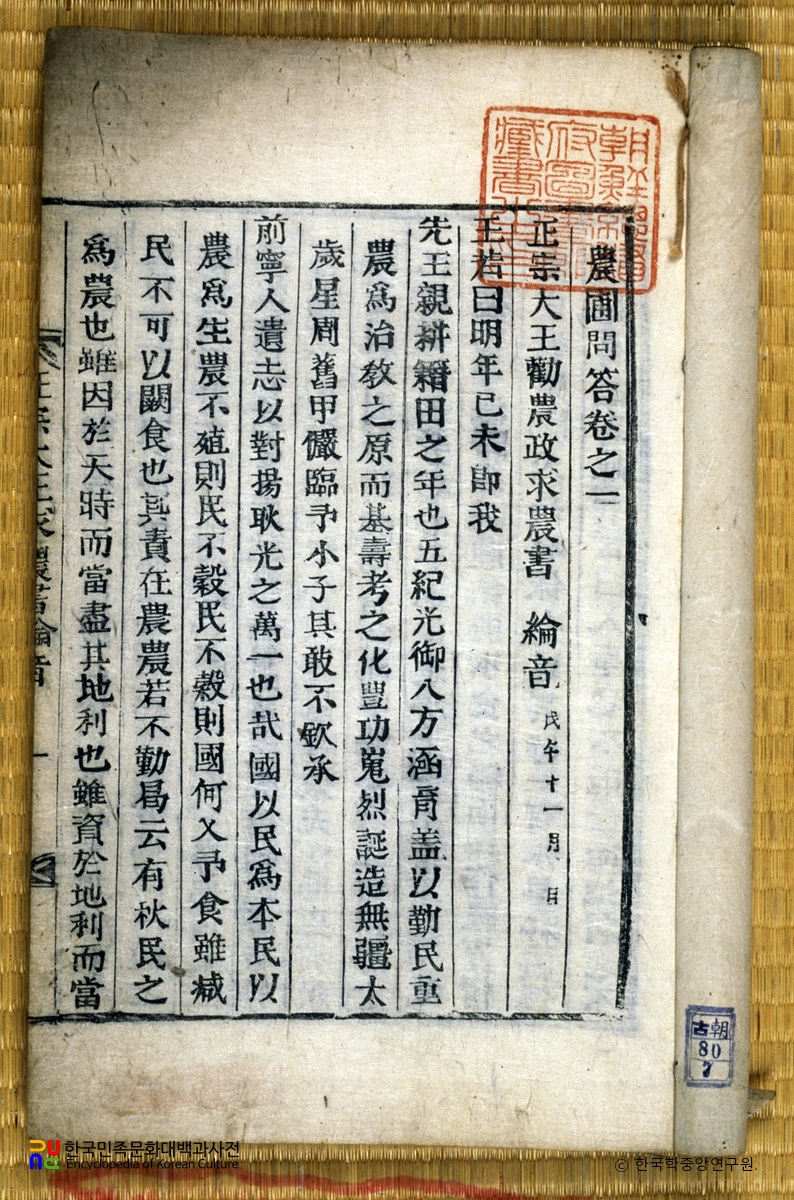 農圃問答卷之一
正宗大王勸農政求農書 綸音 戊午十一月 日
王若曰明年己未卽我
先王親耕籍田之年也五紀光御八方涵育盖以勤民重
農爲治敎之原而基壽考之化豐功嵬烈誕造無疆太
歲星周舊甲儼臨予小子其敢不欽承
前寧人遺志以對揚耿光之萬一也哉國以民爲本民以
農爲生農不殖則民不穀民不穀則國何乂予食雖减
民不可以闕食也其責在農農若不勤曷云有秋民之
爲農也雖因於天時而當盡其地利也雖資於地利而當
農書綸音 一
朝鮮總督府圖書館藏書之印
古朝
80
7
한국민족문화대백과사전
Encyclopedia of Korean Culture
© 한국학중앙연구원.